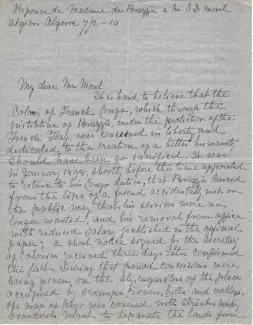 Réponse de Madame de Brazza a Mr E D Morel
Algiers Algeria 7/2-10
My dear Mr Morel
It is hard to believe that the
Colony of French Congo, which through the
initiative of Brazza, under the protection of the
French Flag was conceived in liberty and
dedicated to the creation of a better humanity
should have been so sacrificed. It was
in January 1898, shortly before the time appointed
to return to his Congo station, that Brazza learned
from the lips of a friend accidentally met on
the public way that his services were no
longer wanted, and his removal from office
with reduced salary published in the official
paper; a short notice signed by the Secretary
of Colonies received three days later confirmed
the fact. During that period concessions were
being drawn on the
occupied by
the map of Congo was covered with
boundaries meant to separate the lands given